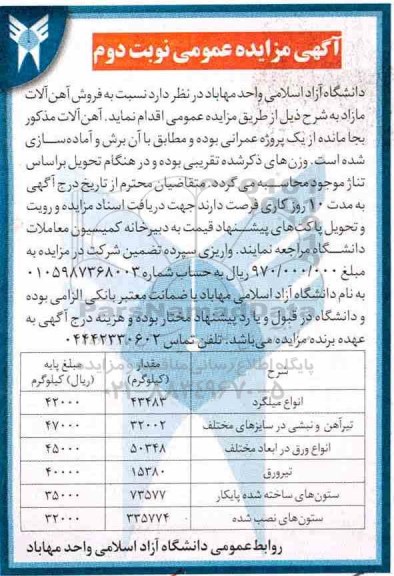 آگهی مزایده عمومی نوبت دوم
دانشگاه آزاد اسلامی واحد مهاباد در نظر دارد نسبت به فروش آهن آلات
مازاد به شرح ذیل از طریق مزایده عمومی اقدام نماید. آهن آلات مذکور
بجا مانده از یک پروژه عمرانی بوده و مطابق با آن برش و آماده سازی
شده است. وزن‌های ذکر شده تقریبی بوده و در هنگام تحویل بر اساس
تناژ موجود محاسبه می گردد. متقاضیان محترم از تاریخ درج آگهی
به مدت ۱۰ روز کاری فرصت دارند جهت دریافت اسناد مزایده و رویت
و تحویل پاکت‌های پیشنهاد قیمت به دبیرخانه کمیسیون معاملات
دانشگاه مراجعه نمایند. واریزی سپرده تضمین شرکت در مزایده به
مبلغ ۹۷۰/۰۰۰/۰۰۰ ریال به حساب شماره ۰۱۰۵۹۸۷۳۶۸۰۰۳
به نام دانشگاه آزاد اسلامی مهاباد یا ضمانت معتبر بانکی الزامی بوده
و دانشگاه در قبول و یا رد پیشنهاد مختار بوده و هزینه درج آگهی به
عهده برنده مزایده می‌باشد. تلفن تماس ۰۴۴۴۲۳۳۰۶۰۲
پایگاه اطلاع رسانی مناقصه و مزایده
شرح مقدار (کیلوگرم) مبلغ پایه (ریال) کیلوگرم
انواع میلگرد ۴۳۴۸۳ ۴۲۰۰۰
تیرآهن و نبشی در سایزهای مختلف ۳۲۰۰۲ ۴۷۰۰۰
انواع ورق در ابعاد مختلف ۵۰۳۴۸ ۴۵۰۰۰
تیرورق ۱۵۳۸۰ ۴۰۰۰۰
ستون‌های ساخته شده پایکار ۷۳۵۷۷ ۳۵۰۰۰
ستون‌های نصب شده ۳۳۵۷۷۴ ۳۲۰۰۰
روابط عمومی دانشگاه آزاد اسلامی واحد مهاباد